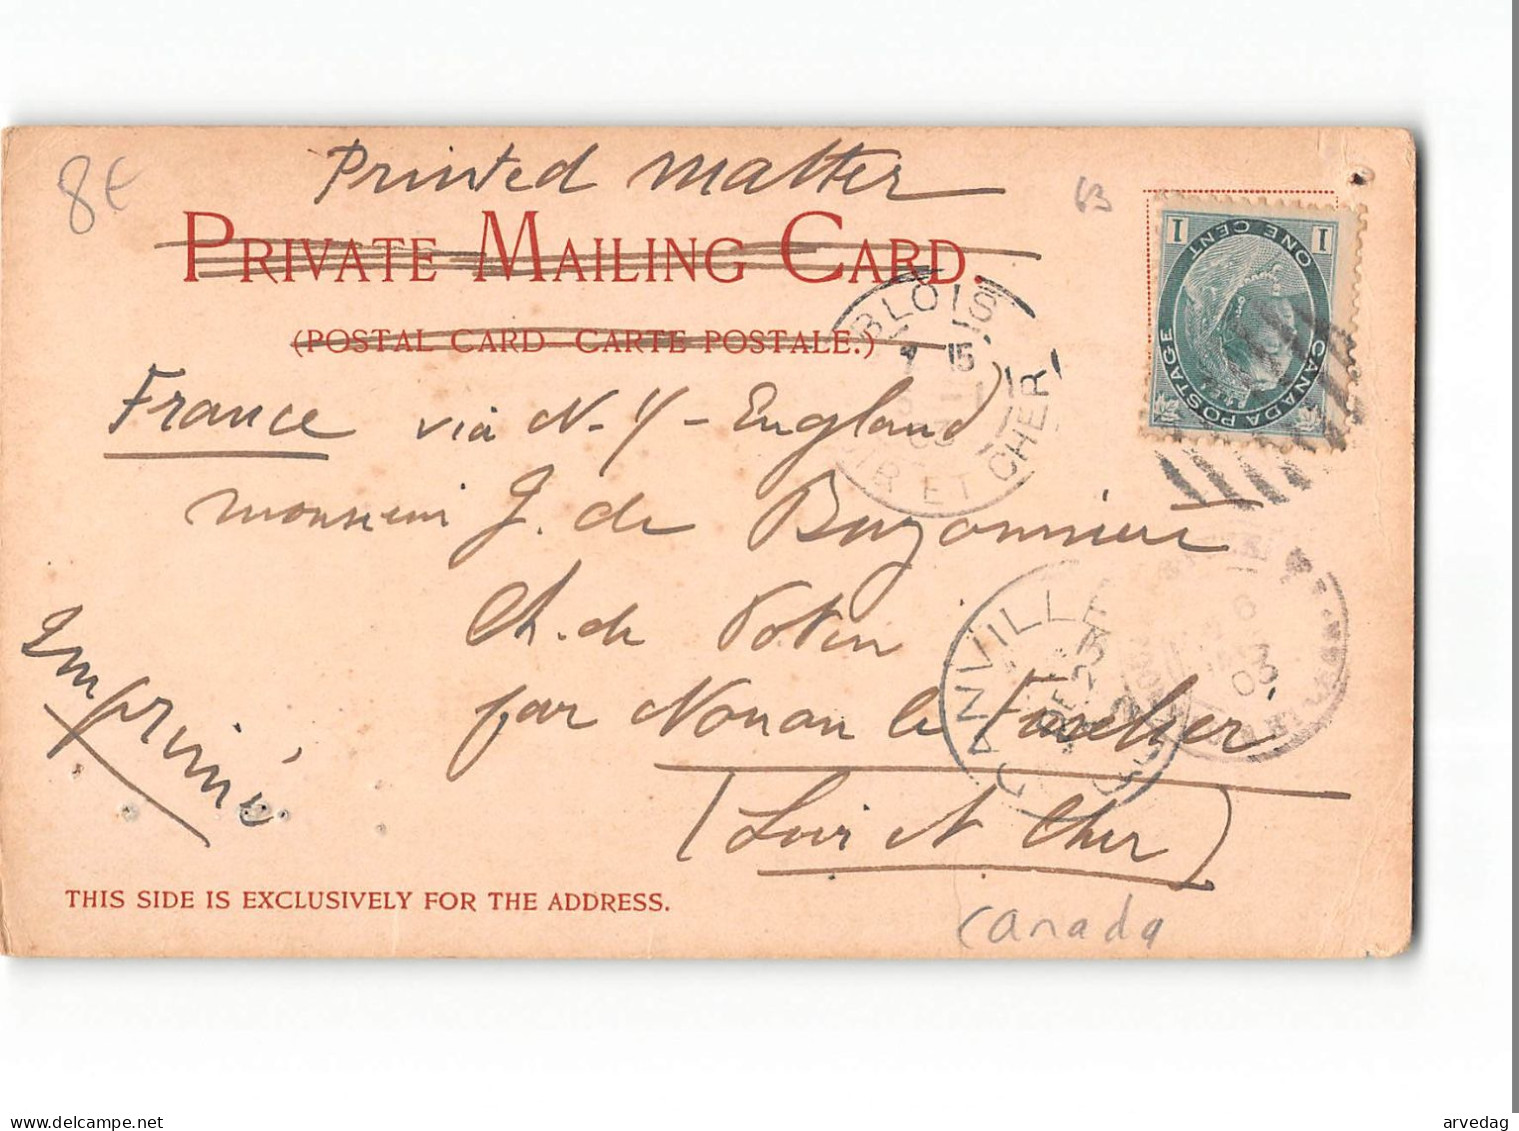 Printed matter
8€
63
PRIVATE MAILING CARD.
(POSTAL CARD - CARTE POSTALE.)
1 ONE CENT 1
CANADA POSTAGE
BLOIS
15
03
LOIR ET CHER
France via N-Y-England
monsieur J. de Buzonnière
Ch. de Potin
par Nouan le Fuzelier
(Loir et Cher)
Imprimé
GANVILLE
DE 23
6
03
THIS SIDE IS EXCLUSIVELY FOR THE ADDRESS.
Canada
arvedag